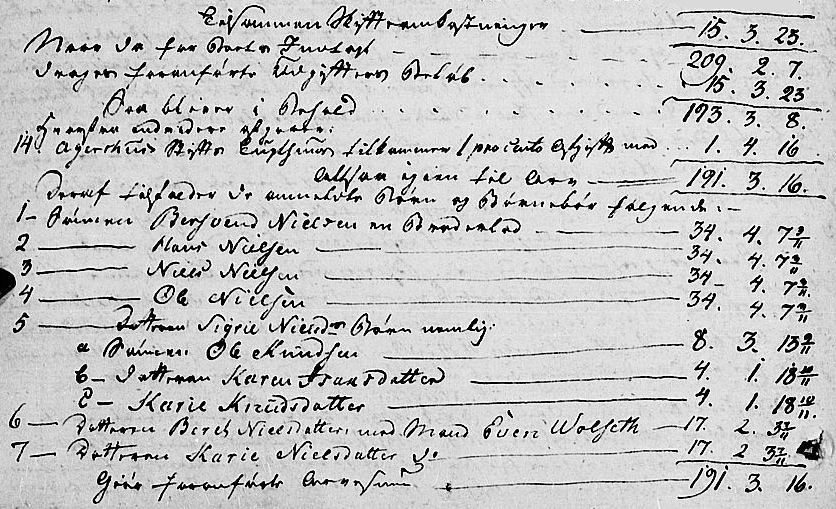 Tilsammen Skifteomkostninger 15. 3. 23.
Naar da fra Boets Indtægt 209. 2. 7.
drages foranførte Udgifters Beløb 15. 3. 23
Saa bliver i Behold 193. 3. 8.
Herefter endvidere afgaaer:
14. Agershuus Stifts Tugthuus tilkommer 1 pro cento Afgift med 1. 4. 16
Altsaa igien til Arv 191. 3. 16.
Deraf tilfalder de anmeldte Børn og Børnebørn følgende:
1 - Sønnen BerSvend Nielsen en Broderlod 34. 4. 7 9/11
2 Hans Nielsen 34. 4. 7 9/11
3 Niels Nielsen 34 4. 7 9/11
4 Ole Nielsen 34. 4. 7 9/11
5 Datteren Sigrie Nielsdr Børn nemlig:
a Sønnen Ole Knudsen 8. 3. 13 9/11
b - Datteren Karen Knudsdatter 4. 1. 18 10/11
c - Karie Knudsdatter 4. 1. 18 10/11
6 - Datteren Berth Nielsdatter med Mand Even Wolseth 17. 2. 3 7/11
7 - Datteren Karie Nielsdatter do 17. 2 3 7/11
Giør foranførte Arvesum 191. 3. 16.